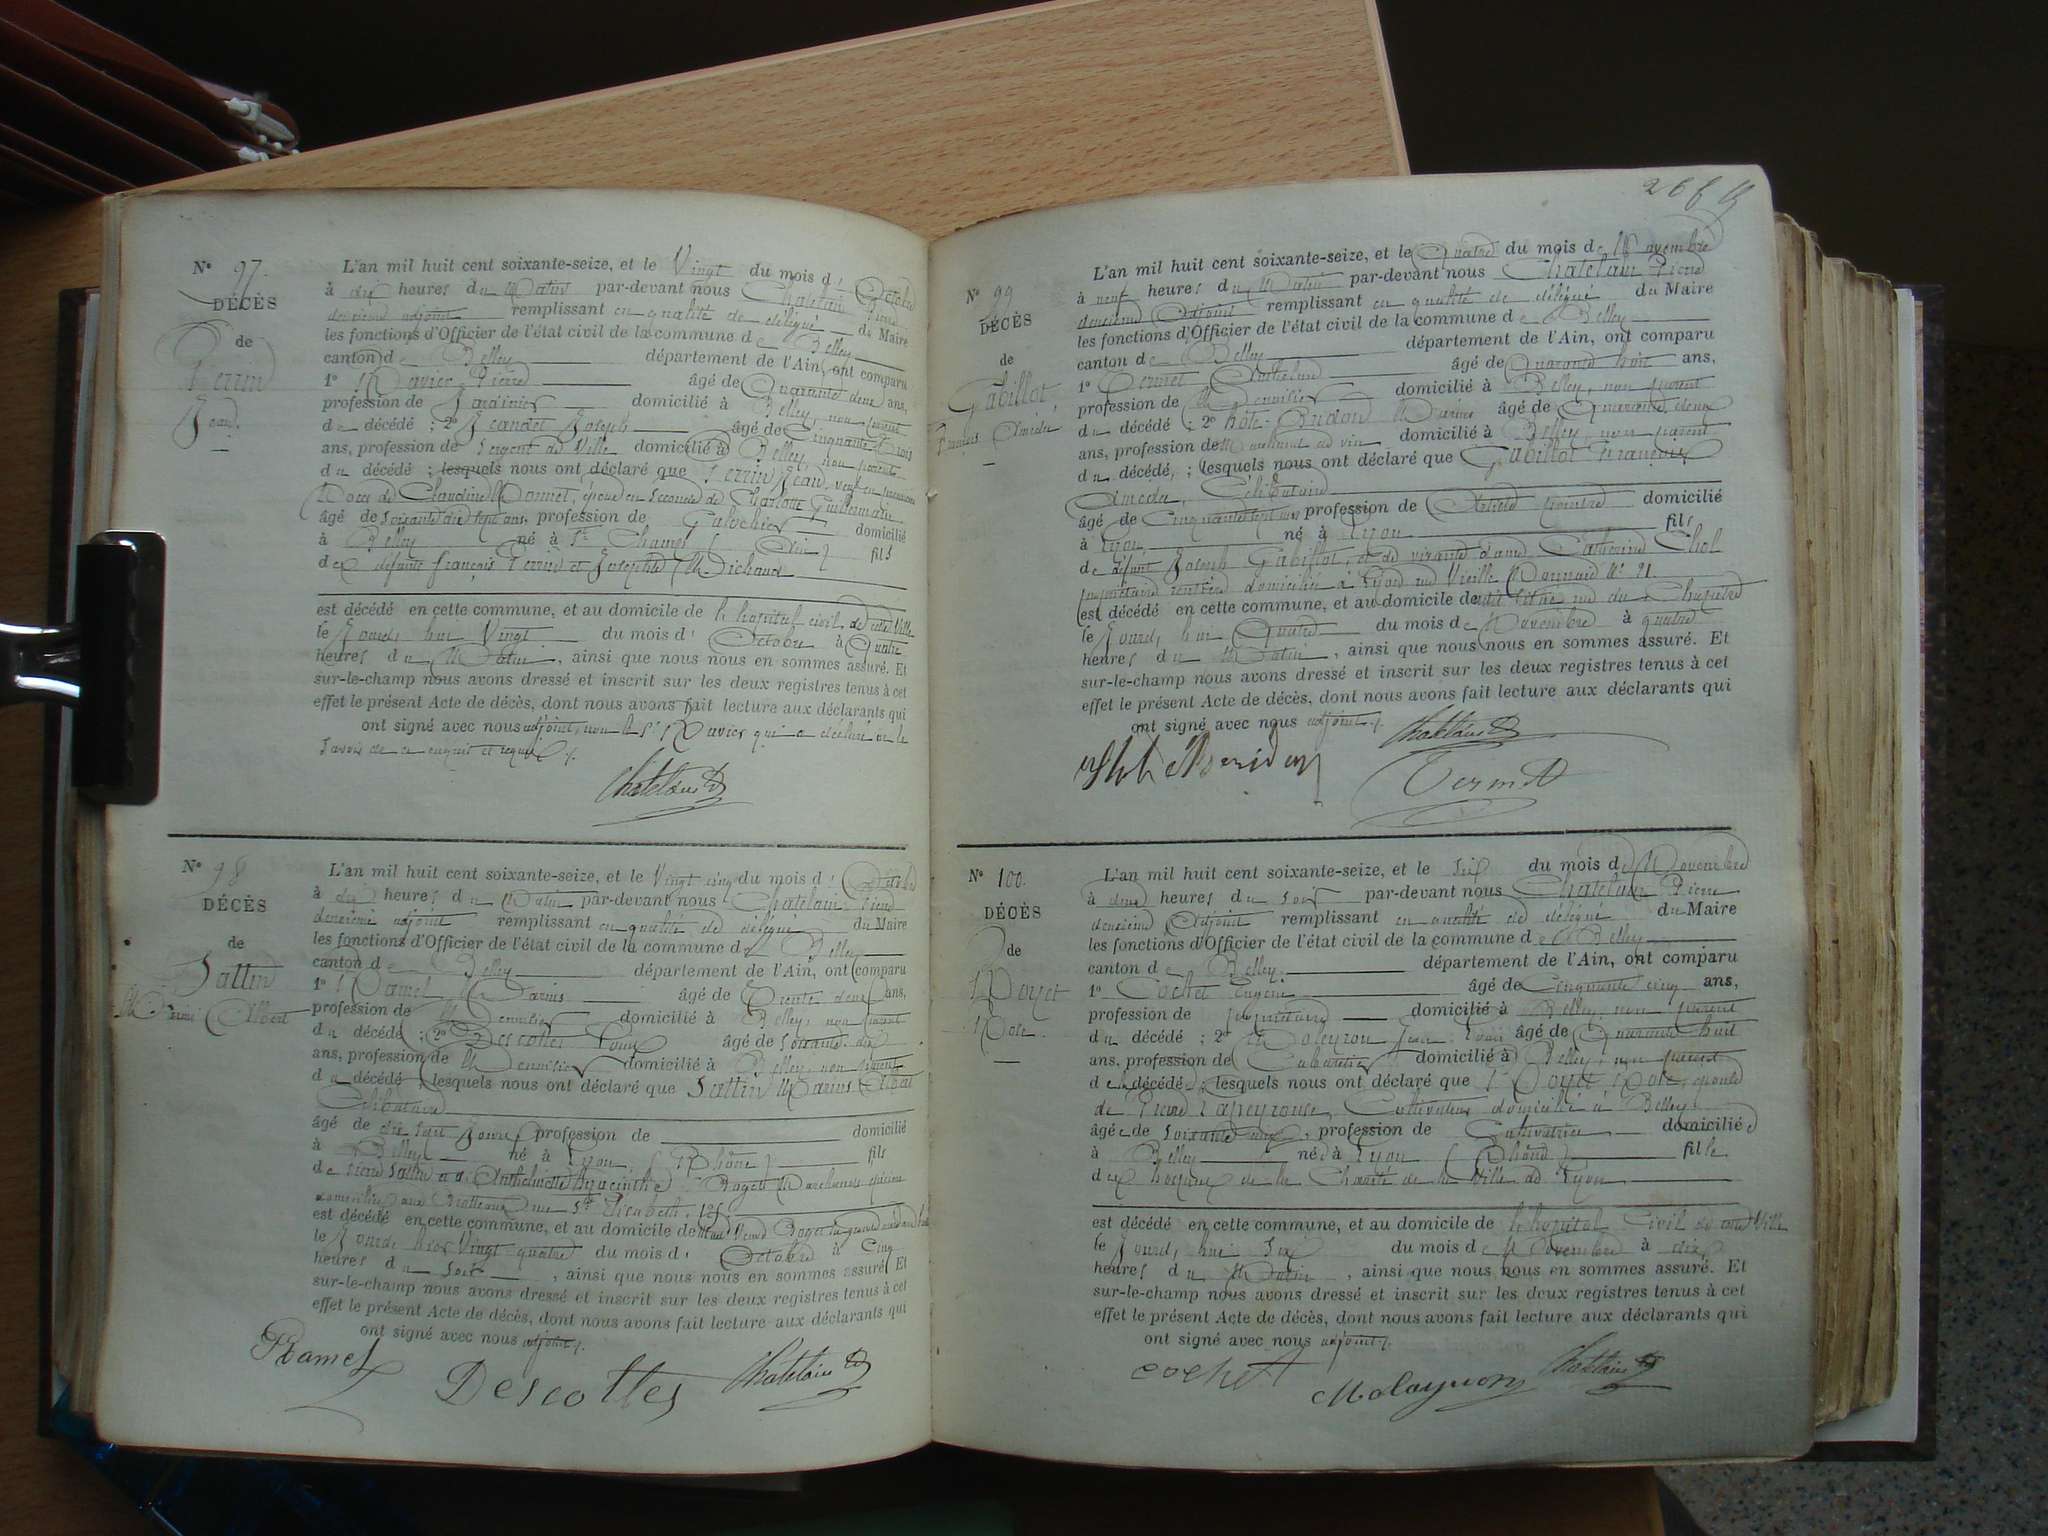 N° 97.
DÉCÈS
de
Perrin
Jean.
L'an mil huit cent soixante-seize, et le Vingt du mois d' Octobre
à dix heures du Matin par-devant nous Chatelain Pierre
deuxième adjoint remplissant en qualité de délégué du Maire
les fonctions d'Officier de l'état civil de la commune de Belley
canton de Belley département de l'Ain, ont comparu
1° Pierre âgé de Quarante deux ans,
profession de Jardinier domicilié à Belley, non parent
du décédé ; 2° Jeandet Joseph âgé de Cinquante trois
ans, profession de Sergent de Ville domicilié à Belley, non parent
du décédé ; lesquels nous ont déclaré que Perrin Jean, veuf en premières
Noces de Claudine Monnet, époux en secondes de Charlotte Guillerman
âgé de soixante dix sept ans, profession de Galochier domicilié
à Belley né à St Chamond fils
des défunts François Perrin et Josephte Michaud
est décédé en cette commune, et au domicile de l'hôpital civil de cette Ville
le Jourd'hui Vingt du mois d' Octobre à Quatre
heures du Matin, ainsi que nous nous en sommes assuré. Et
sur-le-champ nous avons dressé et inscrit sur les deux registres tenus à cet
effet le présent Acte de décès, dont nous avons fait lecture aux déclarants qui
ont signé avec nous adjoint, non le Sr qui a déclaré ne le
savoir de ce enquis et requis.
Chatelain
N° 98
DÉCÈS
de
Sallin
Marius Albert
L'an mil huit cent soixante-seize, et le Vingt cinq du mois d' Octobre
à dix heures du Matin par-devant nous Chatelain Pierre
deuxième adjoint remplissant en qualité de délégué du Maire
les fonctions d'Officier de l'état civil de la commune de Belley
canton de Belley département de l'Ain, ont comparu
1° Ramel Marius âgé de Trente deux ans,
profession de Menuisier domicilié à Belley, non parent
du décédé ; 2° Descottes Louis âgé de soixante dix
ans, profession de Menuisier domicilié à Belley, non parent
du décédé ; lesquels nous ont déclaré que Sallin Marius Albert
Célibataire
âgé de dix sept Jours profession de domicilié
à Belley né à Lyon (Rhône) fils
de Pierre Sallin et d'Anthelmette Hyacinthe Roget Marchands
domiciliés aux Brotteaux rue Ste Elisabeth, 125
est décédé en cette commune, et au domicile de Veuve Roget
le Jourd, hier Vingt quatre du mois d' Octobre à Cinq
heures du soir, ainsi que nous nous en sommes assuré. Et
sur-le-champ nous avons dressé et inscrit sur les deux registres tenus à cet
effet le présent Acte de décès, dont nous avons fait lecture aux déclarants qui
ont signé avec nous adjoint.
Ramel
Descottes
Chatelain
N° 99
DÉCÈS
de
Gabillot
François Amédée
L'an mil huit cent soixante-seize, et le Quatre du mois de Novembre
à neuf heures du Matin par-devant nous Chatelain Pierre
deuxième Adjoint remplissant en qualité de délégué du Maire
les fonctions d'Officier de l'état civil de la commune de Belley
canton de Belley département de l'Ain, ont comparu
1° Vermet Anthelme âgé de Quarante huit ans,
profession de Menuisier domicilié à Belley, non parent
du décédé ; 2° Marius âgé de Quarante deux
ans, profession de Marchand de vin domicilié à Belley, non parent
du décédé, ; lesquels nous ont déclaré que Gabillot François
Amédée, Célibataire
âgé de Cinquante sept ans profession de Artiste peintre domicilié
à Lyon né à Lyon fils
de défunt Joseph Gabillot, et de vivante dame Catherine Chol
propriétaire rentière domiciliée à Lyon rue Vieille Monnaie N° 21.
est décédé en cette commune, et au domicile de
le Jourd'hui Quatre du mois de Novembre à quatre
heures du Matin, ainsi que nous nous en sommes assuré. Et
sur-le-champ nous avons dressé et inscrit sur les deux registres tenus à cet
effet le présent Acte de décès, dont nous avons fait lecture aux déclarants qui
ont signé avec nous adjoint.
Chatelain
Vermet
N° 100.
DÉCÈS
de
Poyet
Rose
L'an mil huit cent soixante-seize, et le six du mois de Novembre
à deux heures du soir par-devant nous Chatelain Pierre
deuxième Adjoint remplissant en qualité de délégué du Maire
les fonctions d'Officier de l'état civil de la commune de Belley
canton de Belley département de l'Ain, ont comparu
1° Cochet Eugène âgé de Cinquante cinq ans,
profession de propriétaire domicilié à Belley, non parent
du décédé ; 2° Jean Louis âgé de Quarante huit
ans, profession de Cabaretier domicilié à Belley, non parent
de décédée ; lesquels nous ont déclaré que Poyet Rose, épouse
de Pierre Lapeyrouse, Cultivateur domicilié à Belley
âgée de soixante profession de Cultivatrice domiciliée
à Belley née à Lyon (Rhône) fille
des hospices de la Charité de la Ville de Lyon
est décédé en cette commune, et au domicile de l'hôpital Civil de cette Ville
le Jourd'hui Six du mois de Novembre à dix
heures du Matin, ainsi que nous nous en sommes assuré. Et
sur-le-champ nous avons dressé et inscrit sur les deux registres tenus à cet
effet le présent Acte de décès, dont nous avons fait lecture aux déclarants qui
ont signé avec nous adjoint.
Cochet
Chatelain